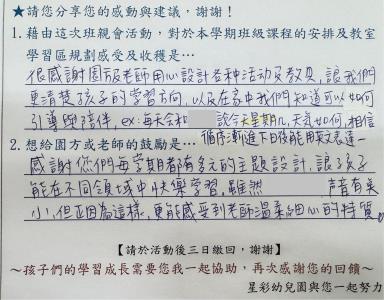 ★請您分享您的感動與建議,謝謝!
1. 藉由這次班親會活動,對於本學期班級課程的安排及教室
學習區規劃感受及收穫是…
很感謝園及老師用心設計各種活動及教具,讓我們
更清楚孩子的學習方向,以及在家中我們知道可以如何
引導與陪伴,ex:每天會和 說今天星期几,天氣如何,相信
循序漸進下日後能用英文表達~
2. 想給園方或老師的鼓勵是…
感謝您們每學期都有多元的主題設計,讓孩子
能在不同領域中快樂學習,雖然 聲音有美
小,但正因為這樣,更能感受到老師溫柔細心的特質。
【請於活動後三日繳回,謝謝】
～孩子們的學習成長需要您我一起協助,再次感謝您的回饋～
星彩幼兒園與您一起努力